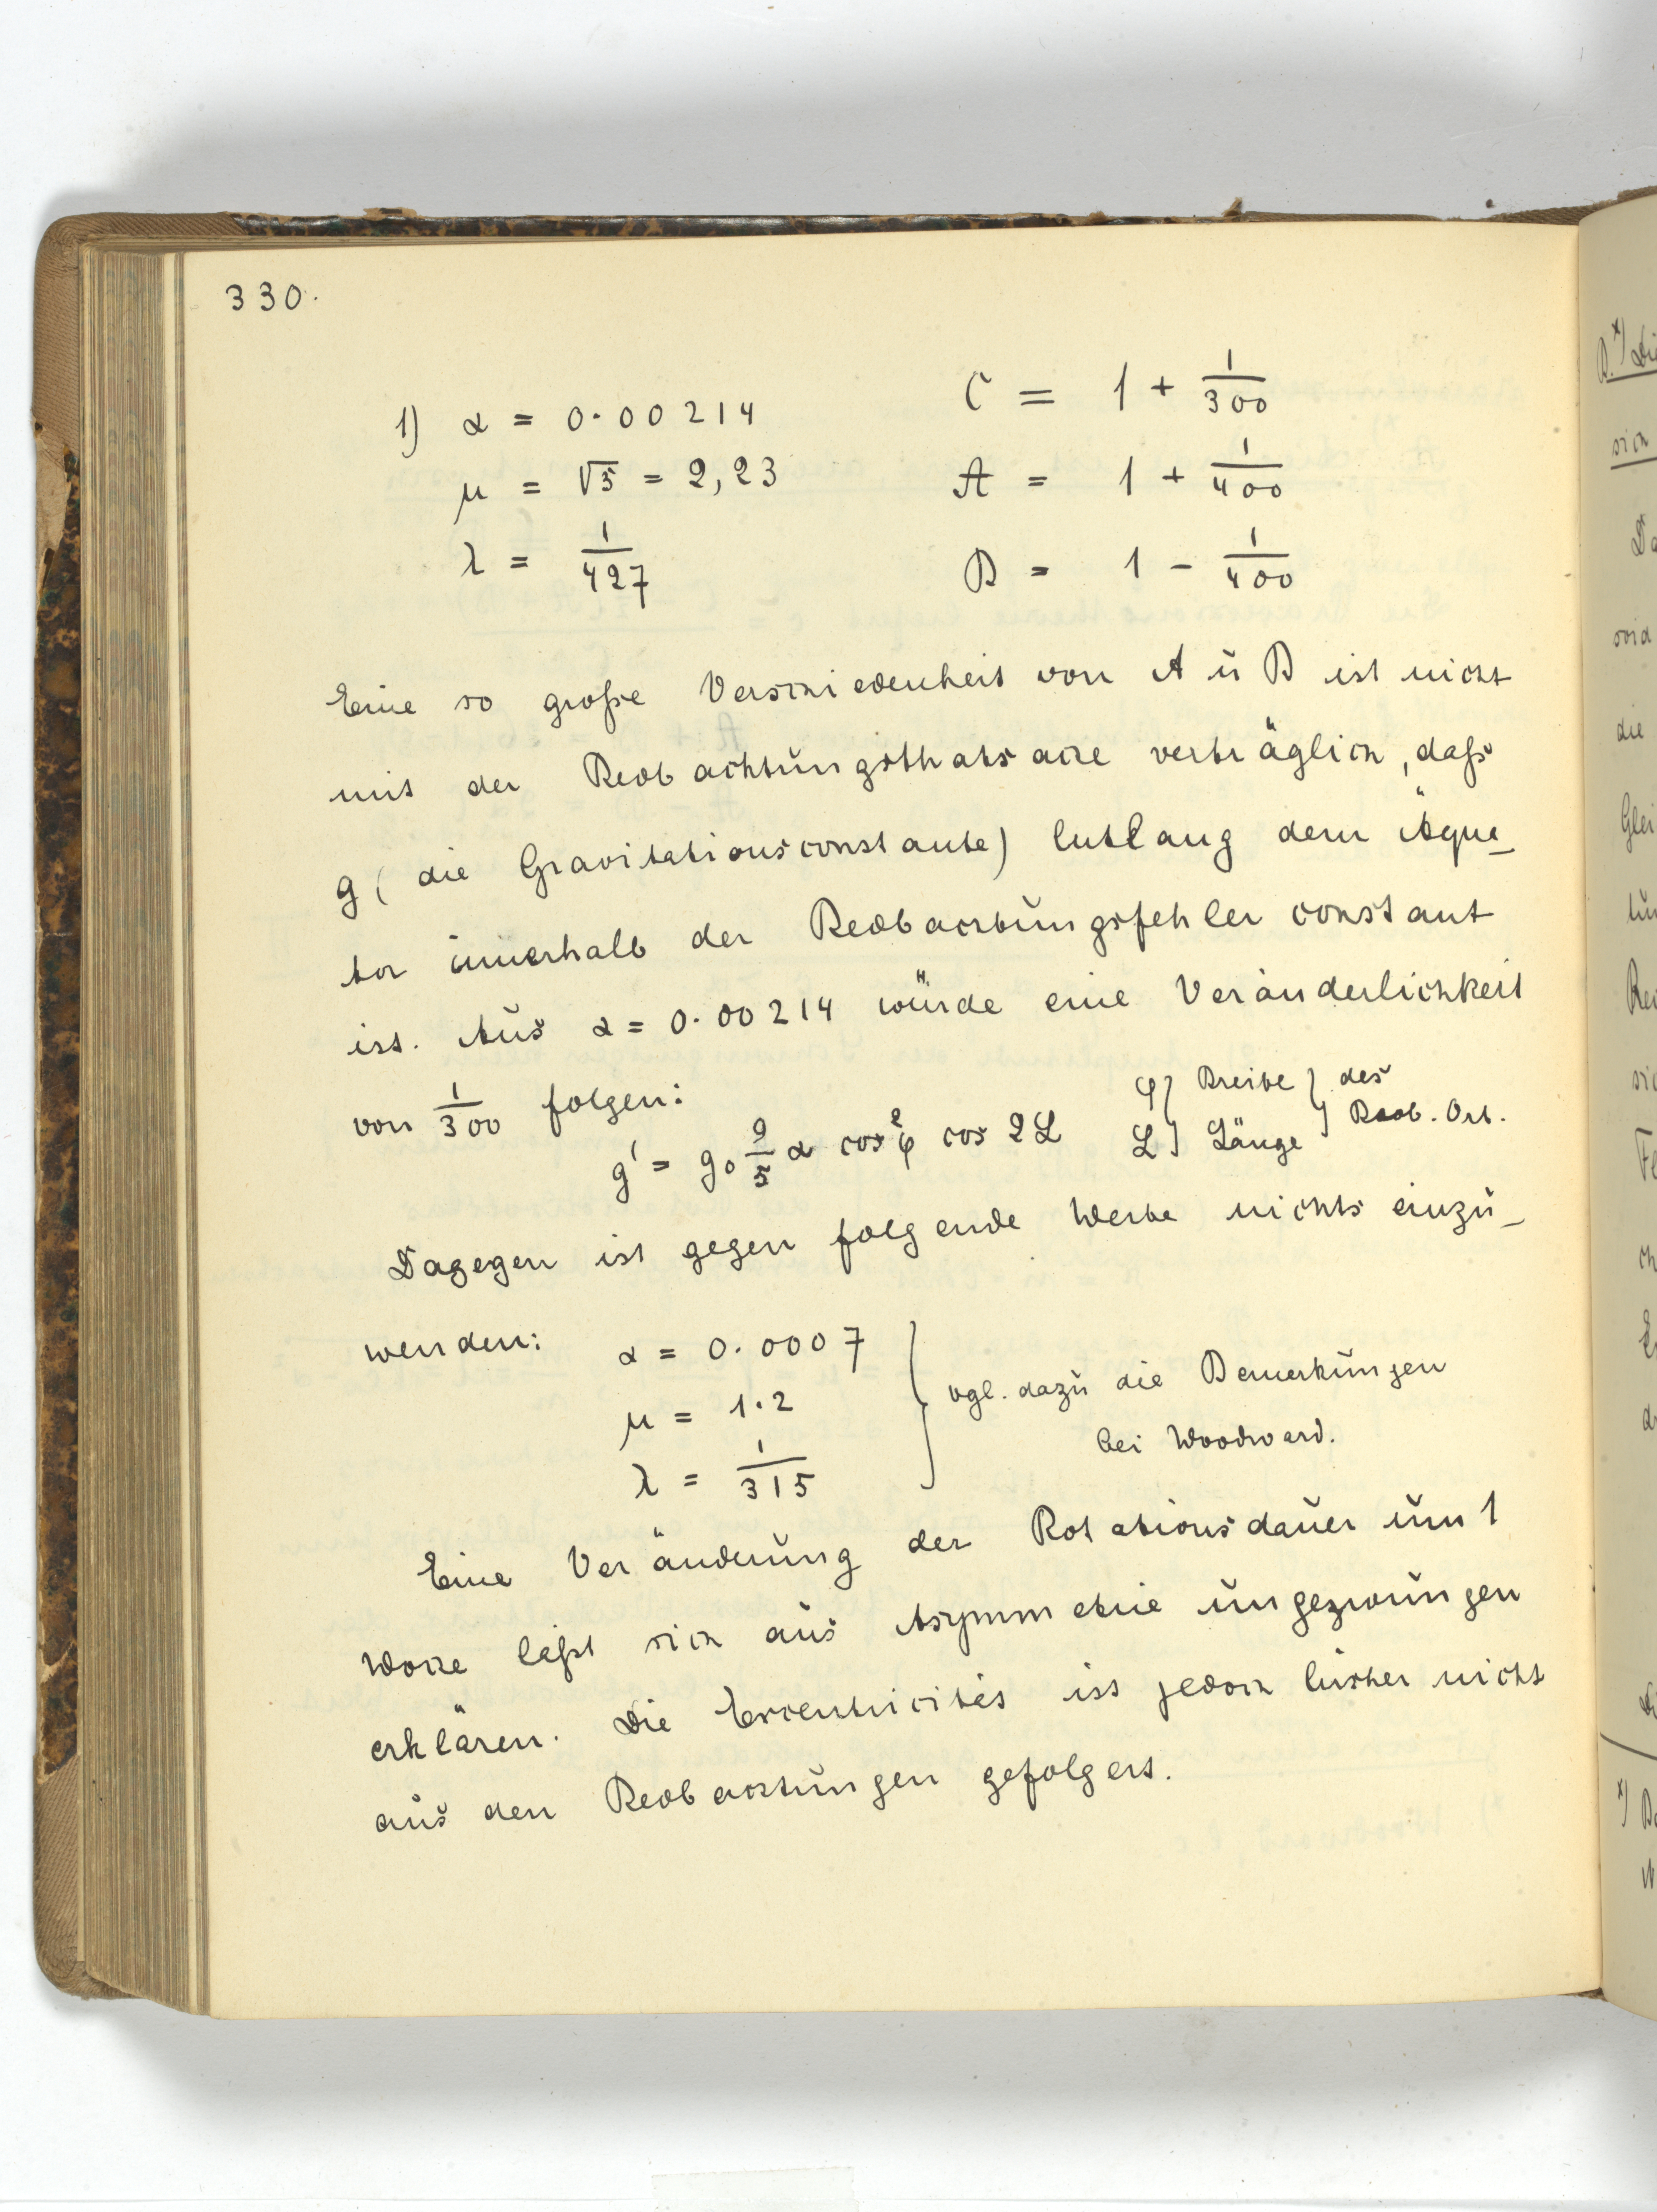 330.
1) α = 0.00214   C = 1 + 1/300
μ = √5 = 2,23   A = 1 + 1/400
λ = 1/427   B = 1 - 1/400
Eine so große Verschiedenheit von A u B ist nicht
mit der Beobachtungsthatsache verträglich, daß
g (die Gravitationsconstante) entlang dem Äqua-
tor innerhalb der Beobachtungsfehler constant
ist. Aus α = 0.00214 würde eine Veränderlichkeit
von 1/300 folgen:
g' = g₀ 9/5 α cos²φ cos 2L   φ} Breite } des
L} Länge } Beob. Ort.
Dagegen ist gegen folgende Werte nichts einzu-
wenden: α = 0.0007
μ = 1.2 } vgl. dazu die Bemerkungen
λ = 1/315   bei Woodward.
Eine Veränderung der Rotationsdauer um 1
Woche läßt sich aus Asymmetrie ungezwungen
erklären. Die Excentricität ist jedoch bisher nicht
aus den Beobachtungen gefolgert.